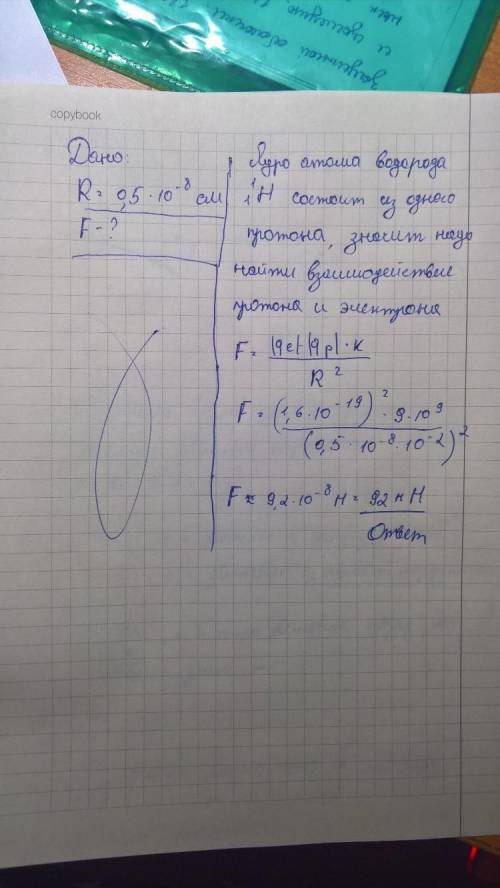 защитной оболочки
и
copybook
Дано:
R = 0,5·10⁻⁸ см
F - ?
Ядро атома водорода
¹₁H состоит из одного
протона, значит надо
найти взаимодействие
протона и электрона
F = |qe|·|qp|·k / R²
F = (1,6·10⁻¹⁹)²·9·10⁹ / (0,5·10⁻⁸·10⁻²)²
F ≈ 9,2·10⁻⁸ Н = 92 нН
Ответ